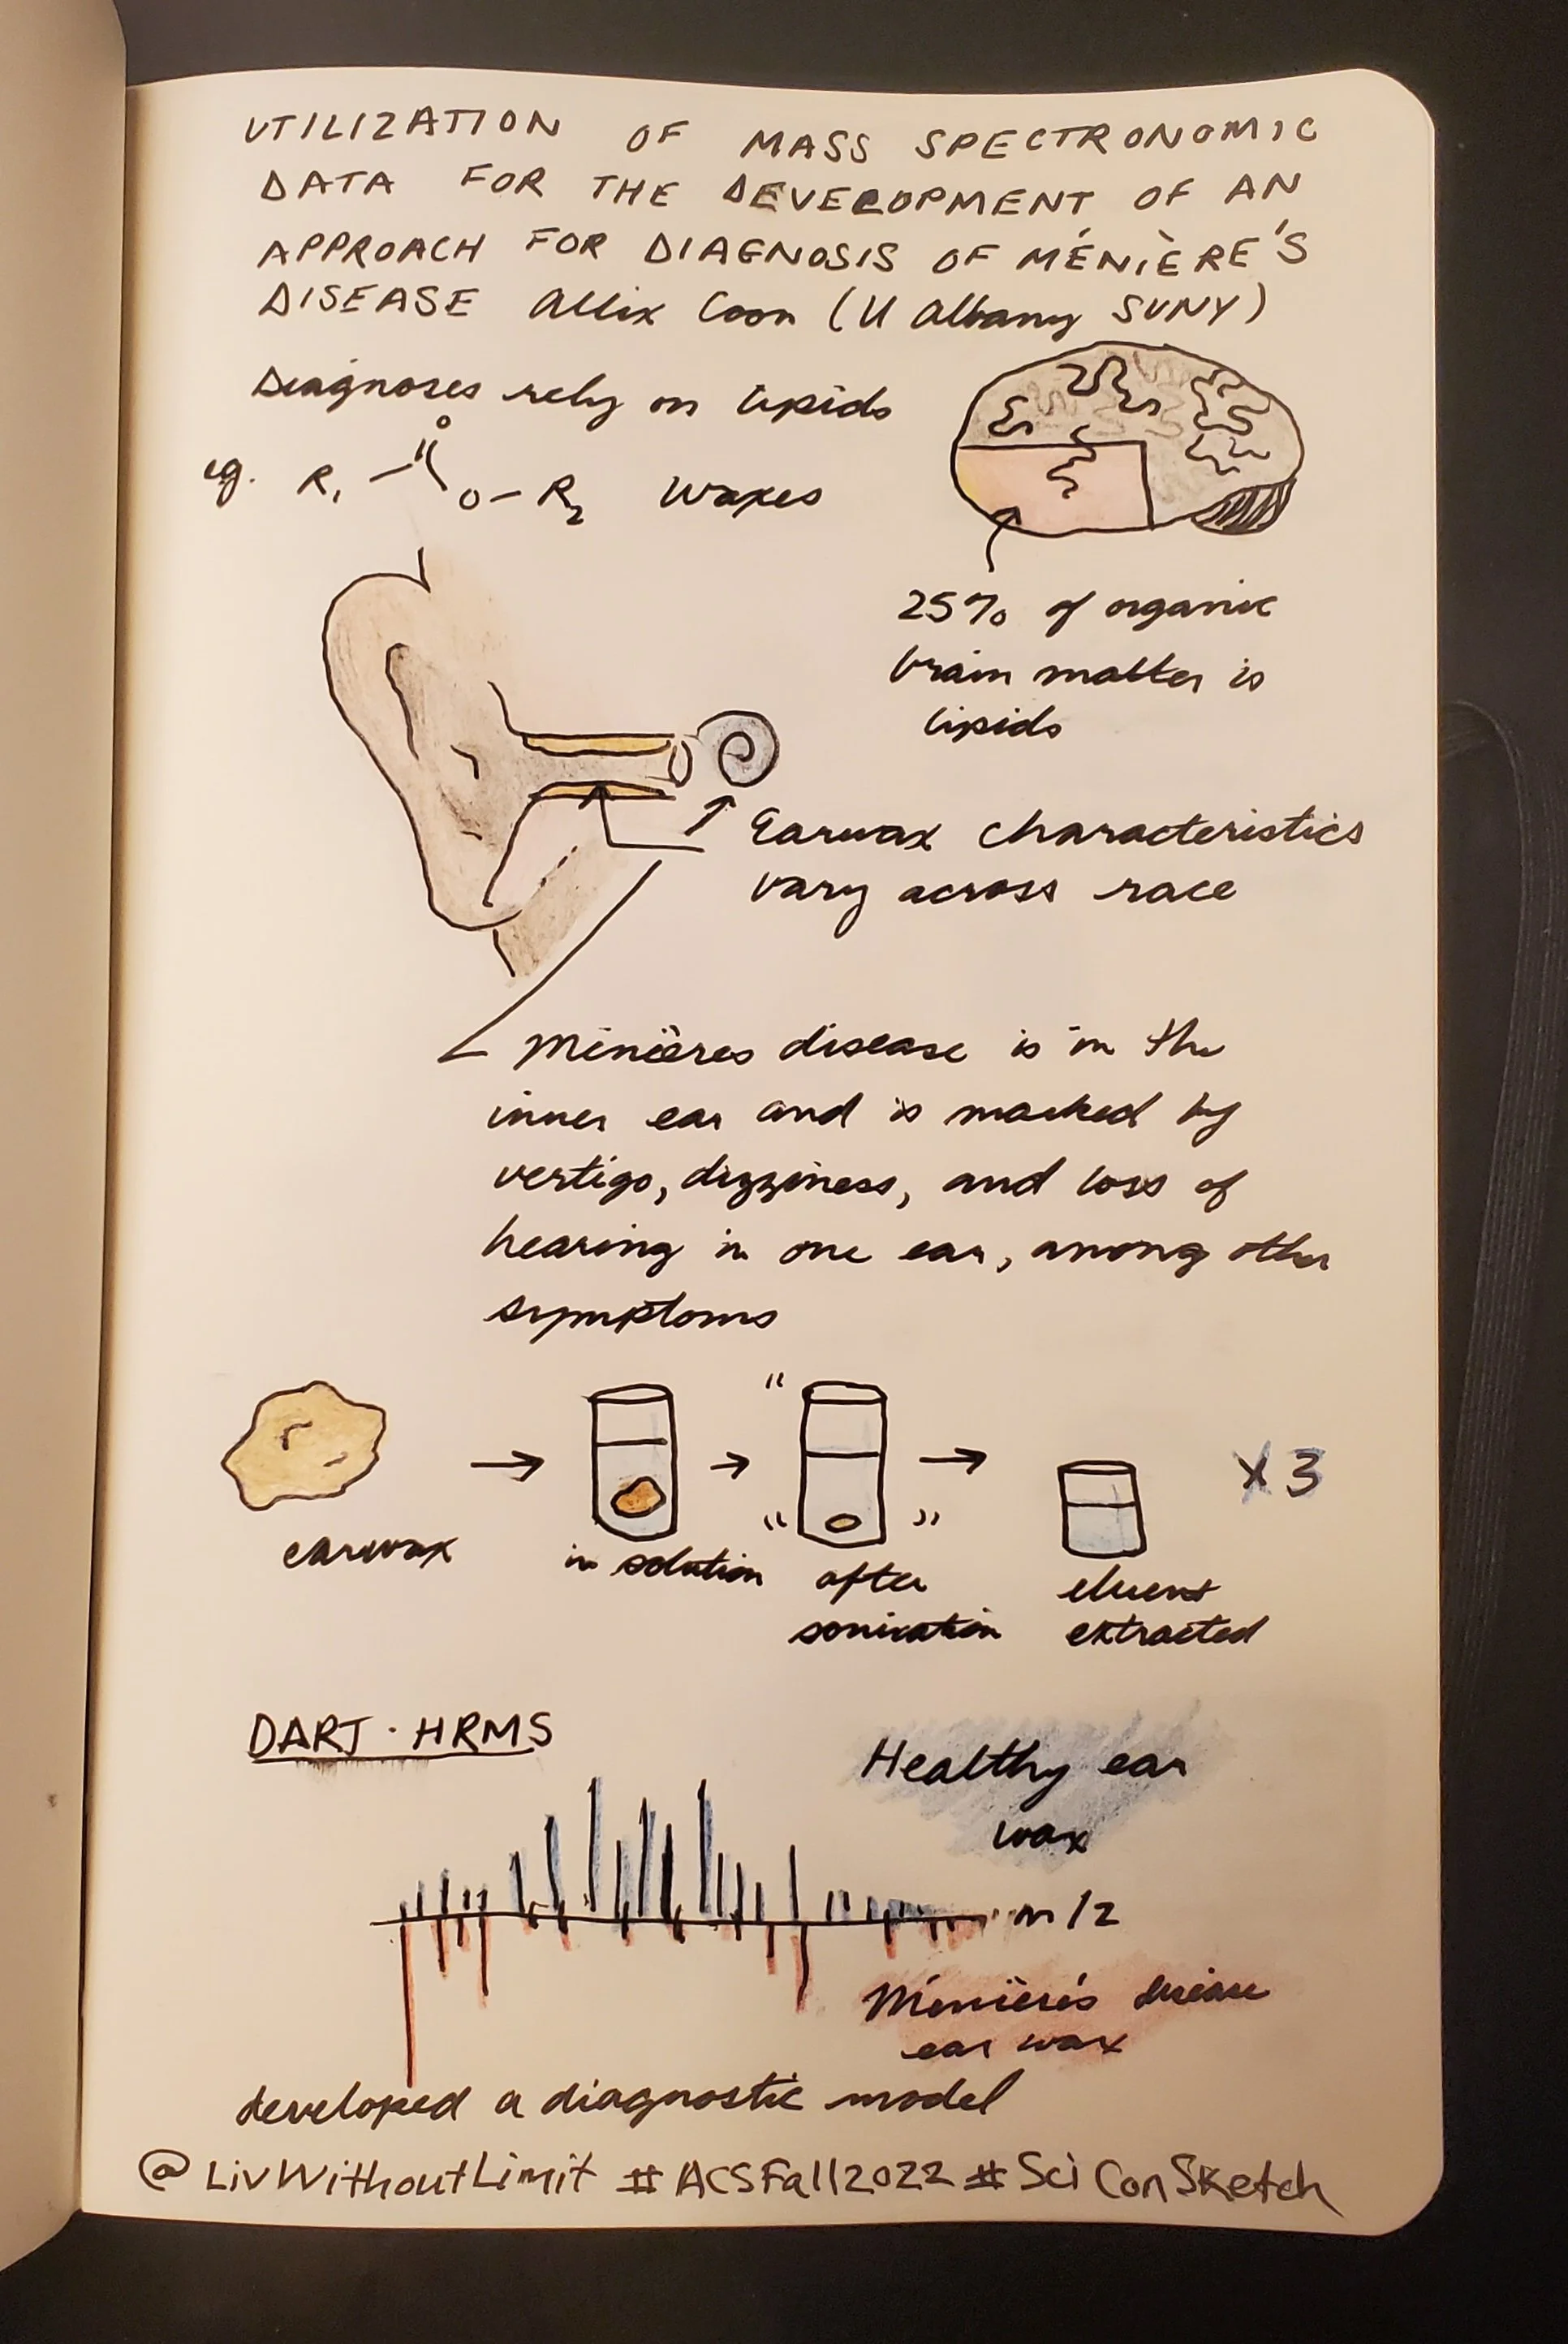 UTILIZATION OF MASS SPECTRONOMIC
DATA FOR THE DEVELOPMENT OF AN
APPROACH FOR DIAGNOSIS OF MÉNIÈRE'S
DISEASE Allix Coon (U Albany SUNY)
Diagnoses rely on lipids
eg. R1 O O-R2 waxes
25% of organic
brain matter is
lipids
Earwax characteristics
vary across race
Minières disease is in the
inner ear and is marked by
vertigo, dizziness, and loss of
hearing in one ear, among other
symptoms
x3
earwax
in solution
after
sonication
eluent
extracted
DART-HRMS
Healthy ear
wax
m/z
Ménière's disease
ear wax
developed a diagnostic model
@LivWithoutLimit #ACSFall2022 #SciConSketch